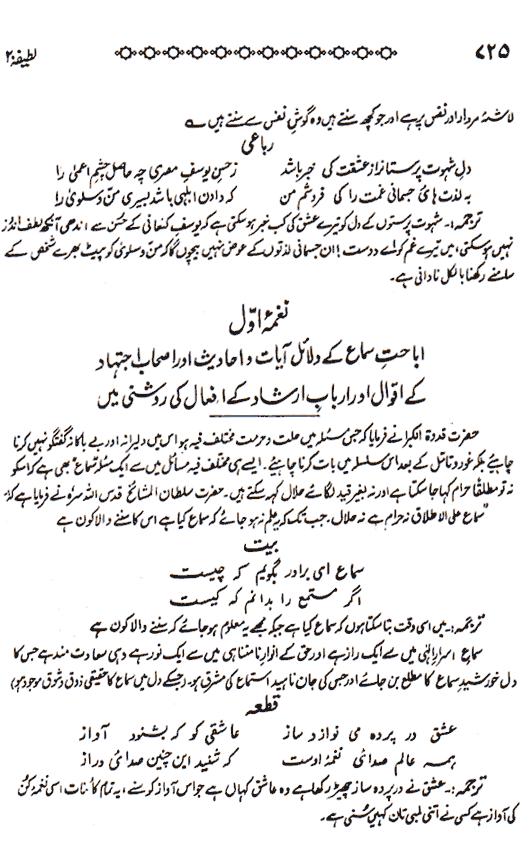 ۷۲۵ لطیفۂ ۲
لاشۂ مردار اور نفس پر ہے اور جو کچھ سنتے ہیں وہ گوشِ نفس سے سنتے ہیں ؎
رباعی
دلِ شہوت پرستا نراز عشقت کی خبر باشد زحسنِ یوسفِ مصری چہ حاصل چشمِ اعمیٰ را
بہ لذت ہائ جسمانی غمت را کی فروشم من کہ دادن ابلہی باشد بسیری منّ و سلویٰ را
ترجمہ:۔ شہوت پرستوں کے دل کو تیرے عشق کی کب خبر ہو سکتی ہے کہ یوسفِ کنعانی کے حُسن سے اندھی آنکھ لطف اندوز
نہیں ہو سکتی، میں تیرے غم کو اے دوست! ان جسمانی لذتوں کے عوض نہیں بیچوں گا کہ منّ و سلویٰ کو پیٹ بھرے شخص کے
سامنے رکھنا بالکل نادانی ہے۔
نغمۂ اوّل
اباحتِ سماع کے دلائل آیات و احادیث اور اصحابِ اجتہاد
کے اقوال اور اربابِ ارشاد کے افعال کی روشنی میں
حضرت قدوۃ الکبرا نے فرمایا کہ جس مسئلہ میں حلت و حرمت مختلف فیہ ہو اس میں دلیرانہ اور بے باکانہ گفتگو نہیں کرنا
چاہیئے بلکہ غور و تامل کے بعد اس سلسلہ میں بات کرنا چاہیئے۔ ایسے ہی مختلف فیہ مسائل میں سے ایک مسئلہ سماع بھی ہے کہ اسکو
نہ تو مطلقاً حرام کہا جا سکتا ہے اور نہ بغیر قید لگائے حلال کہہ سکتے ہیں۔ حضرت سلطان المشائخ قدس اللہ سرہٗ نے فرمایا ہے کہ
"سماع علی الاطلاق نہ حرام ہے نہ حلال۔ جب تک کہ یہ علم نہ ہو جائے کہ سماع کیا ہے اس کا سننے والا کون ہے
بیت
سماع ای برادر بگویم کہ چیست
اگر مستمع را بدانم کہ کیست
ترجمہ:۔ میں اسی وقت بتا سکتا ہوں کہ سماع کیا ہے جبکہ مجھے یہ معلوم ہو جائے کہ سننے والا کون ہے
سماع اسرارِ الٰہی میں سے ایک راز ہے اور حق کے انوارِ نامتناہی میں سے ایک نور ہے وہی سعادت مند ہے جس کا
دل خورشیدِ سماع کا مطلع بن جائے اور جس کی جان ناہید استماع کی مشرق ہو۔ (جسکے دل میں سماع کا حقیقی ذوق و شوق موجود ہو)
قطعہ
عشق در پردہ می نوازد ساز عاشقی کو کہ بشنود آواز
ہمہ عالم صدائ نغمۂ اوست کہ شنید این چنین صدائ دراز
ترجمہ:۔ عشق نے در پردہ ساز چھیڑ رکھا ہے وہ عاشق کہاں ہے جو اس آواز کو سنے، یہ تمام کائنات اسی نغمۂ کُن
کی آواز ہے کسی نے اتنی لمبی تان کہیں سُنی ہے۔